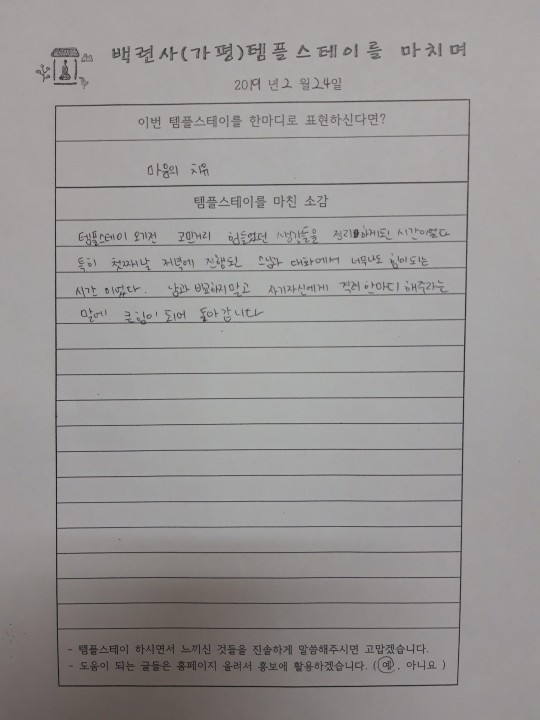 백련사(가평)템플스테이를 마치며
2019 년 2 월 24일
이번 템플스테이를 한마디로 표현하신다면?
마음의 치유
템플스테이를 마친 소감
템플스테이 오기전 고민거리 힘들었던 생각들을 정리하게된 시간이었다
특히 첫째날 저녁에 진행된 스님과 대화에서 너무나도 힘이되는
시간 이었다. 남과 비교하지말고 자기자신에게 격려 한마디 해주라는
말에 큰힘이 되어 돌아갑니다
- 템플스테이 하시면서 느끼신 것들을 진솔하게 말씀해주시면 고맙겠습니다.
- 도움이 되는 글들은 홈페이지 올려서 홍보에 활용하겠습니다. (예, 아니요 )